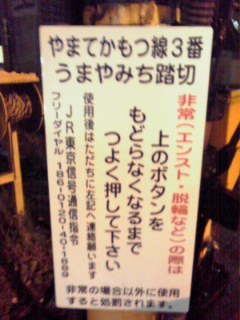 やまてかもつ線３番
うまやみち踏切
非常(エンスト・脱輪など)の際は
上のボタンを
もどらなくなるまで
つよく押して下さい
使用後はただちに左記へ連絡願います
ＪＲ東京信号通信指令
フリーダイヤル 186-0120-40-1669
非常の場合以外に使用
すると処罰されます。